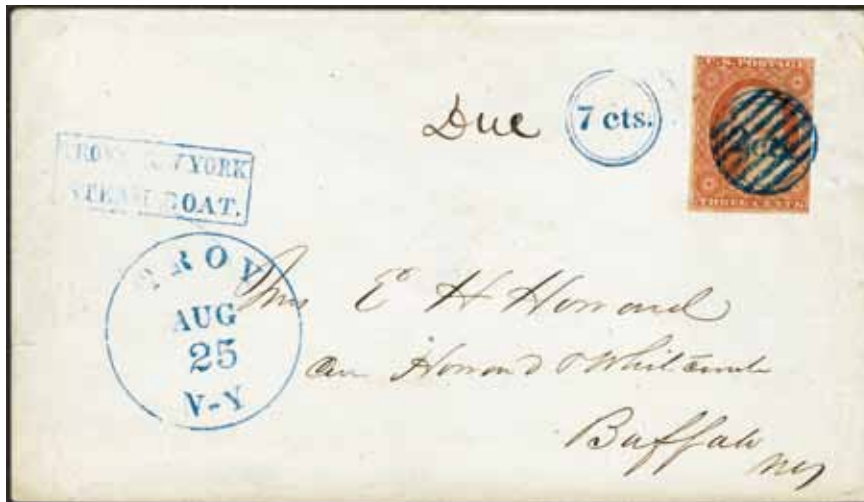 U.S. POSTAGE
Due 7 cts.
THREE CENTS
TROY & NEW YORK
STEAM BOAT.
TROY
AUG
25
N-Y
Mrs E H Howard
Howard & Whitcomb
Buffalo
NY